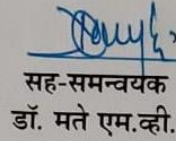 सह-समन्वयक
डॉ. मते एम.व्ही.